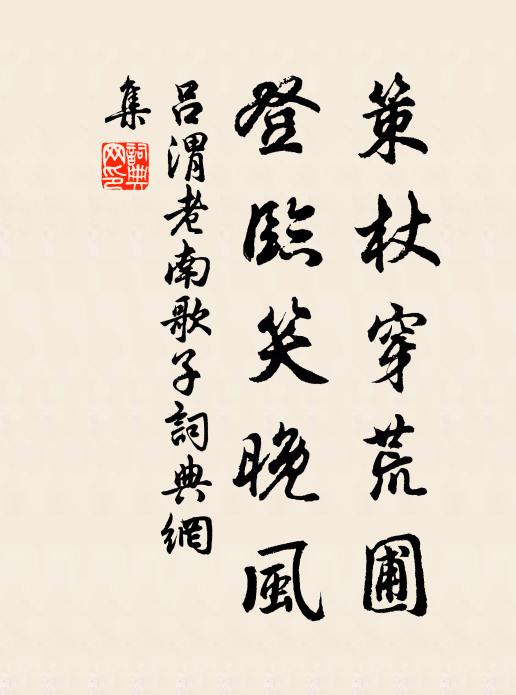 策杖穿荒圃
登臨笑晚風
呂渭老南歌子詞典網
集
詞典
网印